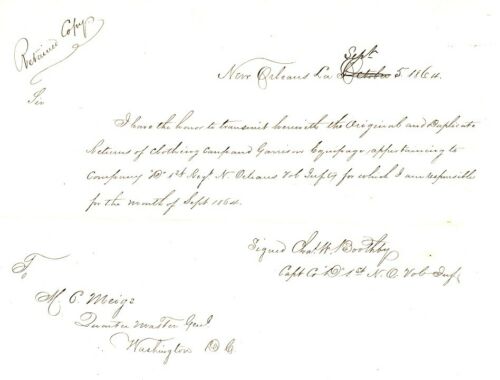 Retained Copy
Sept
New Orleans La October 5 1864.
Sir
I have the honor to transmit herewith the Original and Duplicate
Returns of Clothing Camp and Garrison Equipage, appertaining to
Company "D" 1st Regt N Orleans Vol Infty for which I am responsible
for the month of Sept 1864.
Signed Chas H. Boothby
Capt Co "D" 1st N. O. Vol Inf
To
M. C. Meigs
Quarter Master Genl
Washington D C.